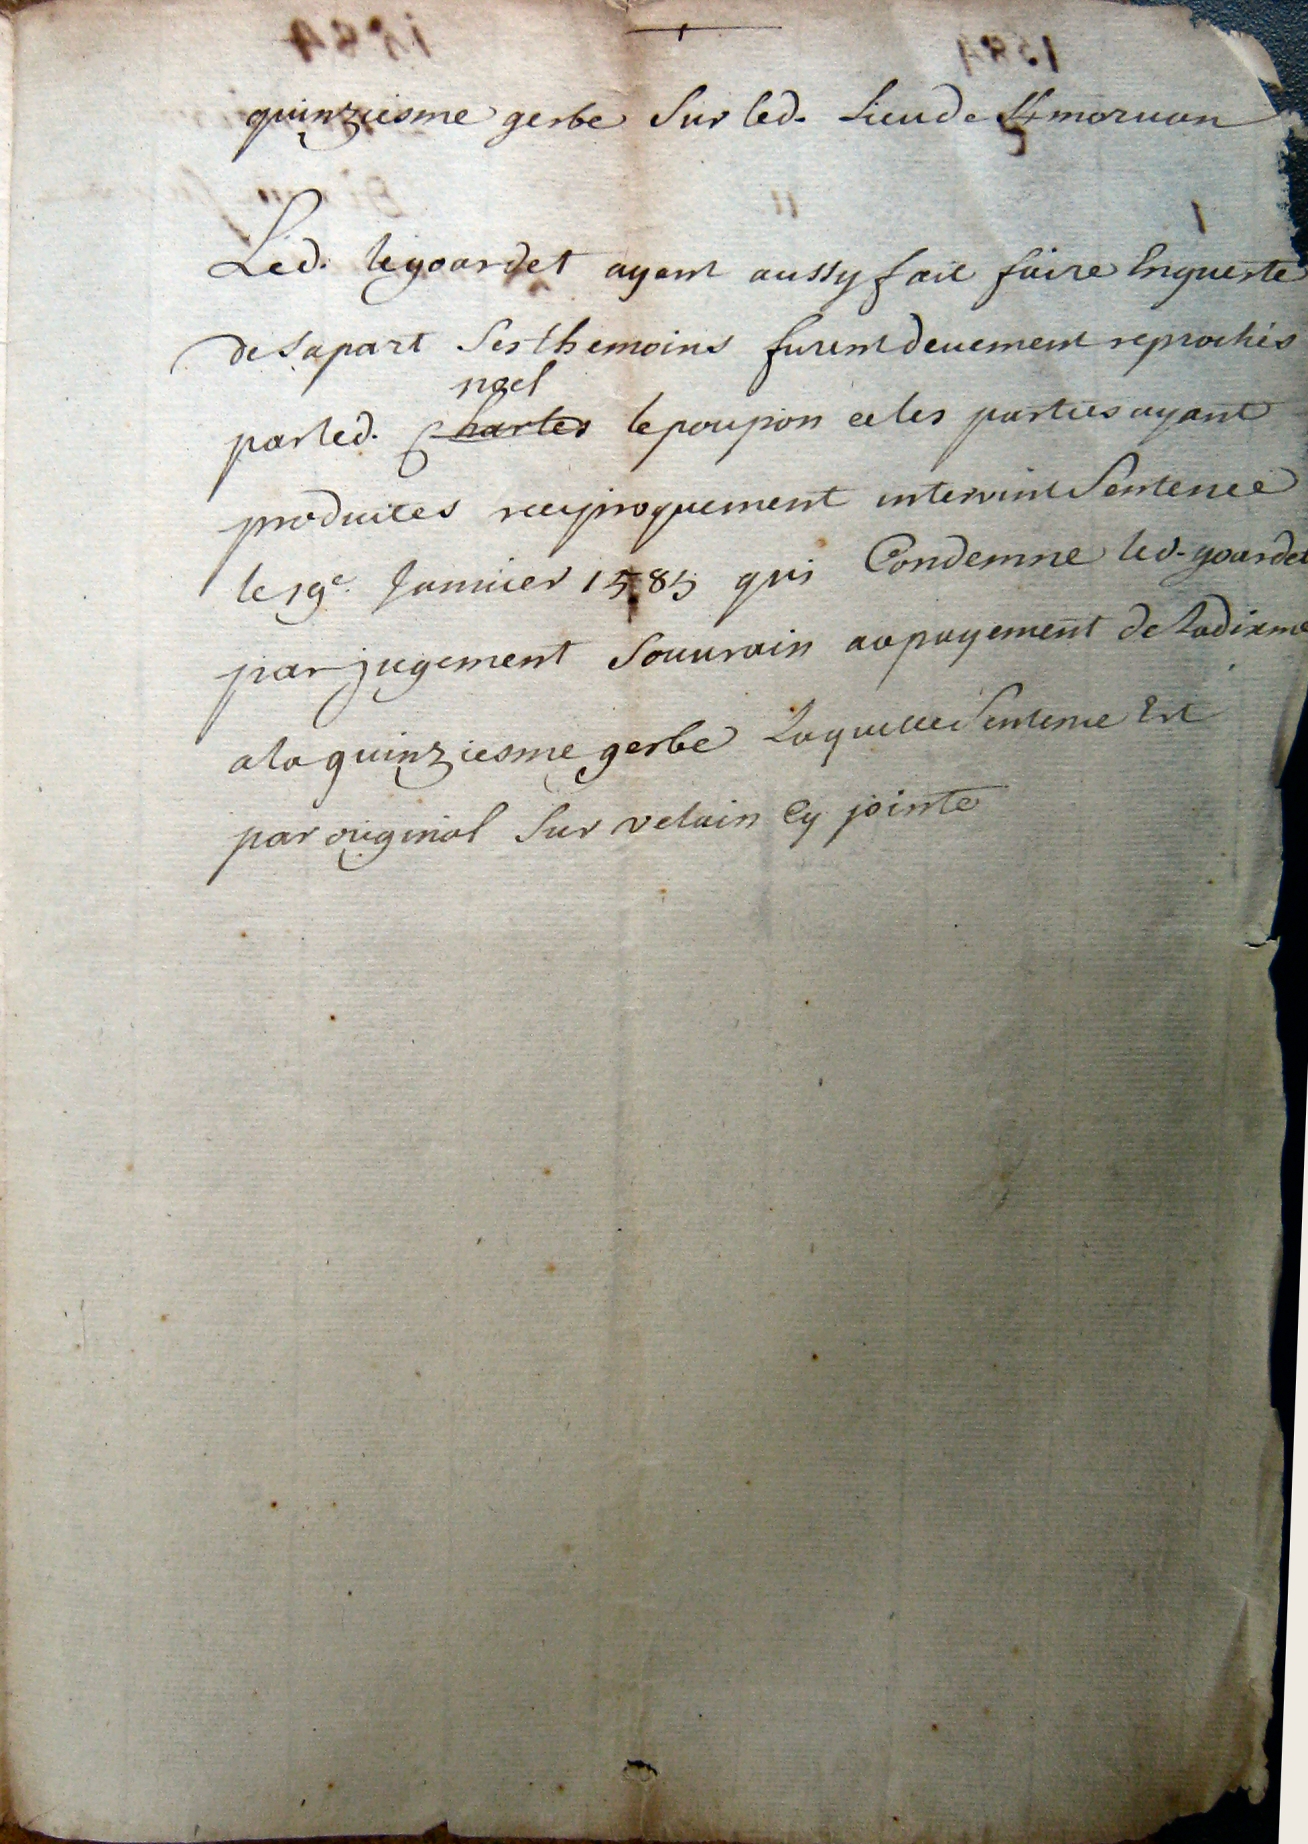 quinziesme gerbe sur led. lieu de St morvan
Led. legoardet ayant aussy fait faire Enqueste
de sa part Ses themoins furent deuement reprochés
noel
par led. Charles lepoupon et les parties ayant
produites reciproquement intervint Sentence
le 19e. Januier 1585 qui Condemne led. goardet
par jugement Souurain au payement de la dixme
a la quinziesme gerbe Laquelle Sentence Est
par original Sur velain Cy jointe